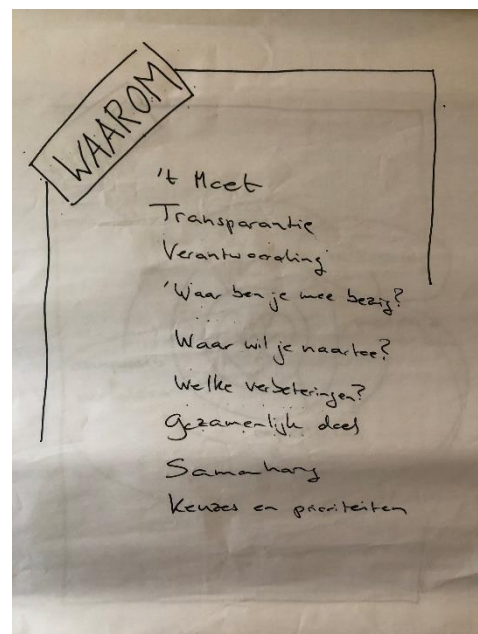 WAAROM
't Moet
Transparantie
Verantwoording
'Waar ben je mee bezig?
Waar wil je naartoe?
Welke verbeteringen?
Gezamenlijk doel
Samenhang
Keuzes en prioriteiten